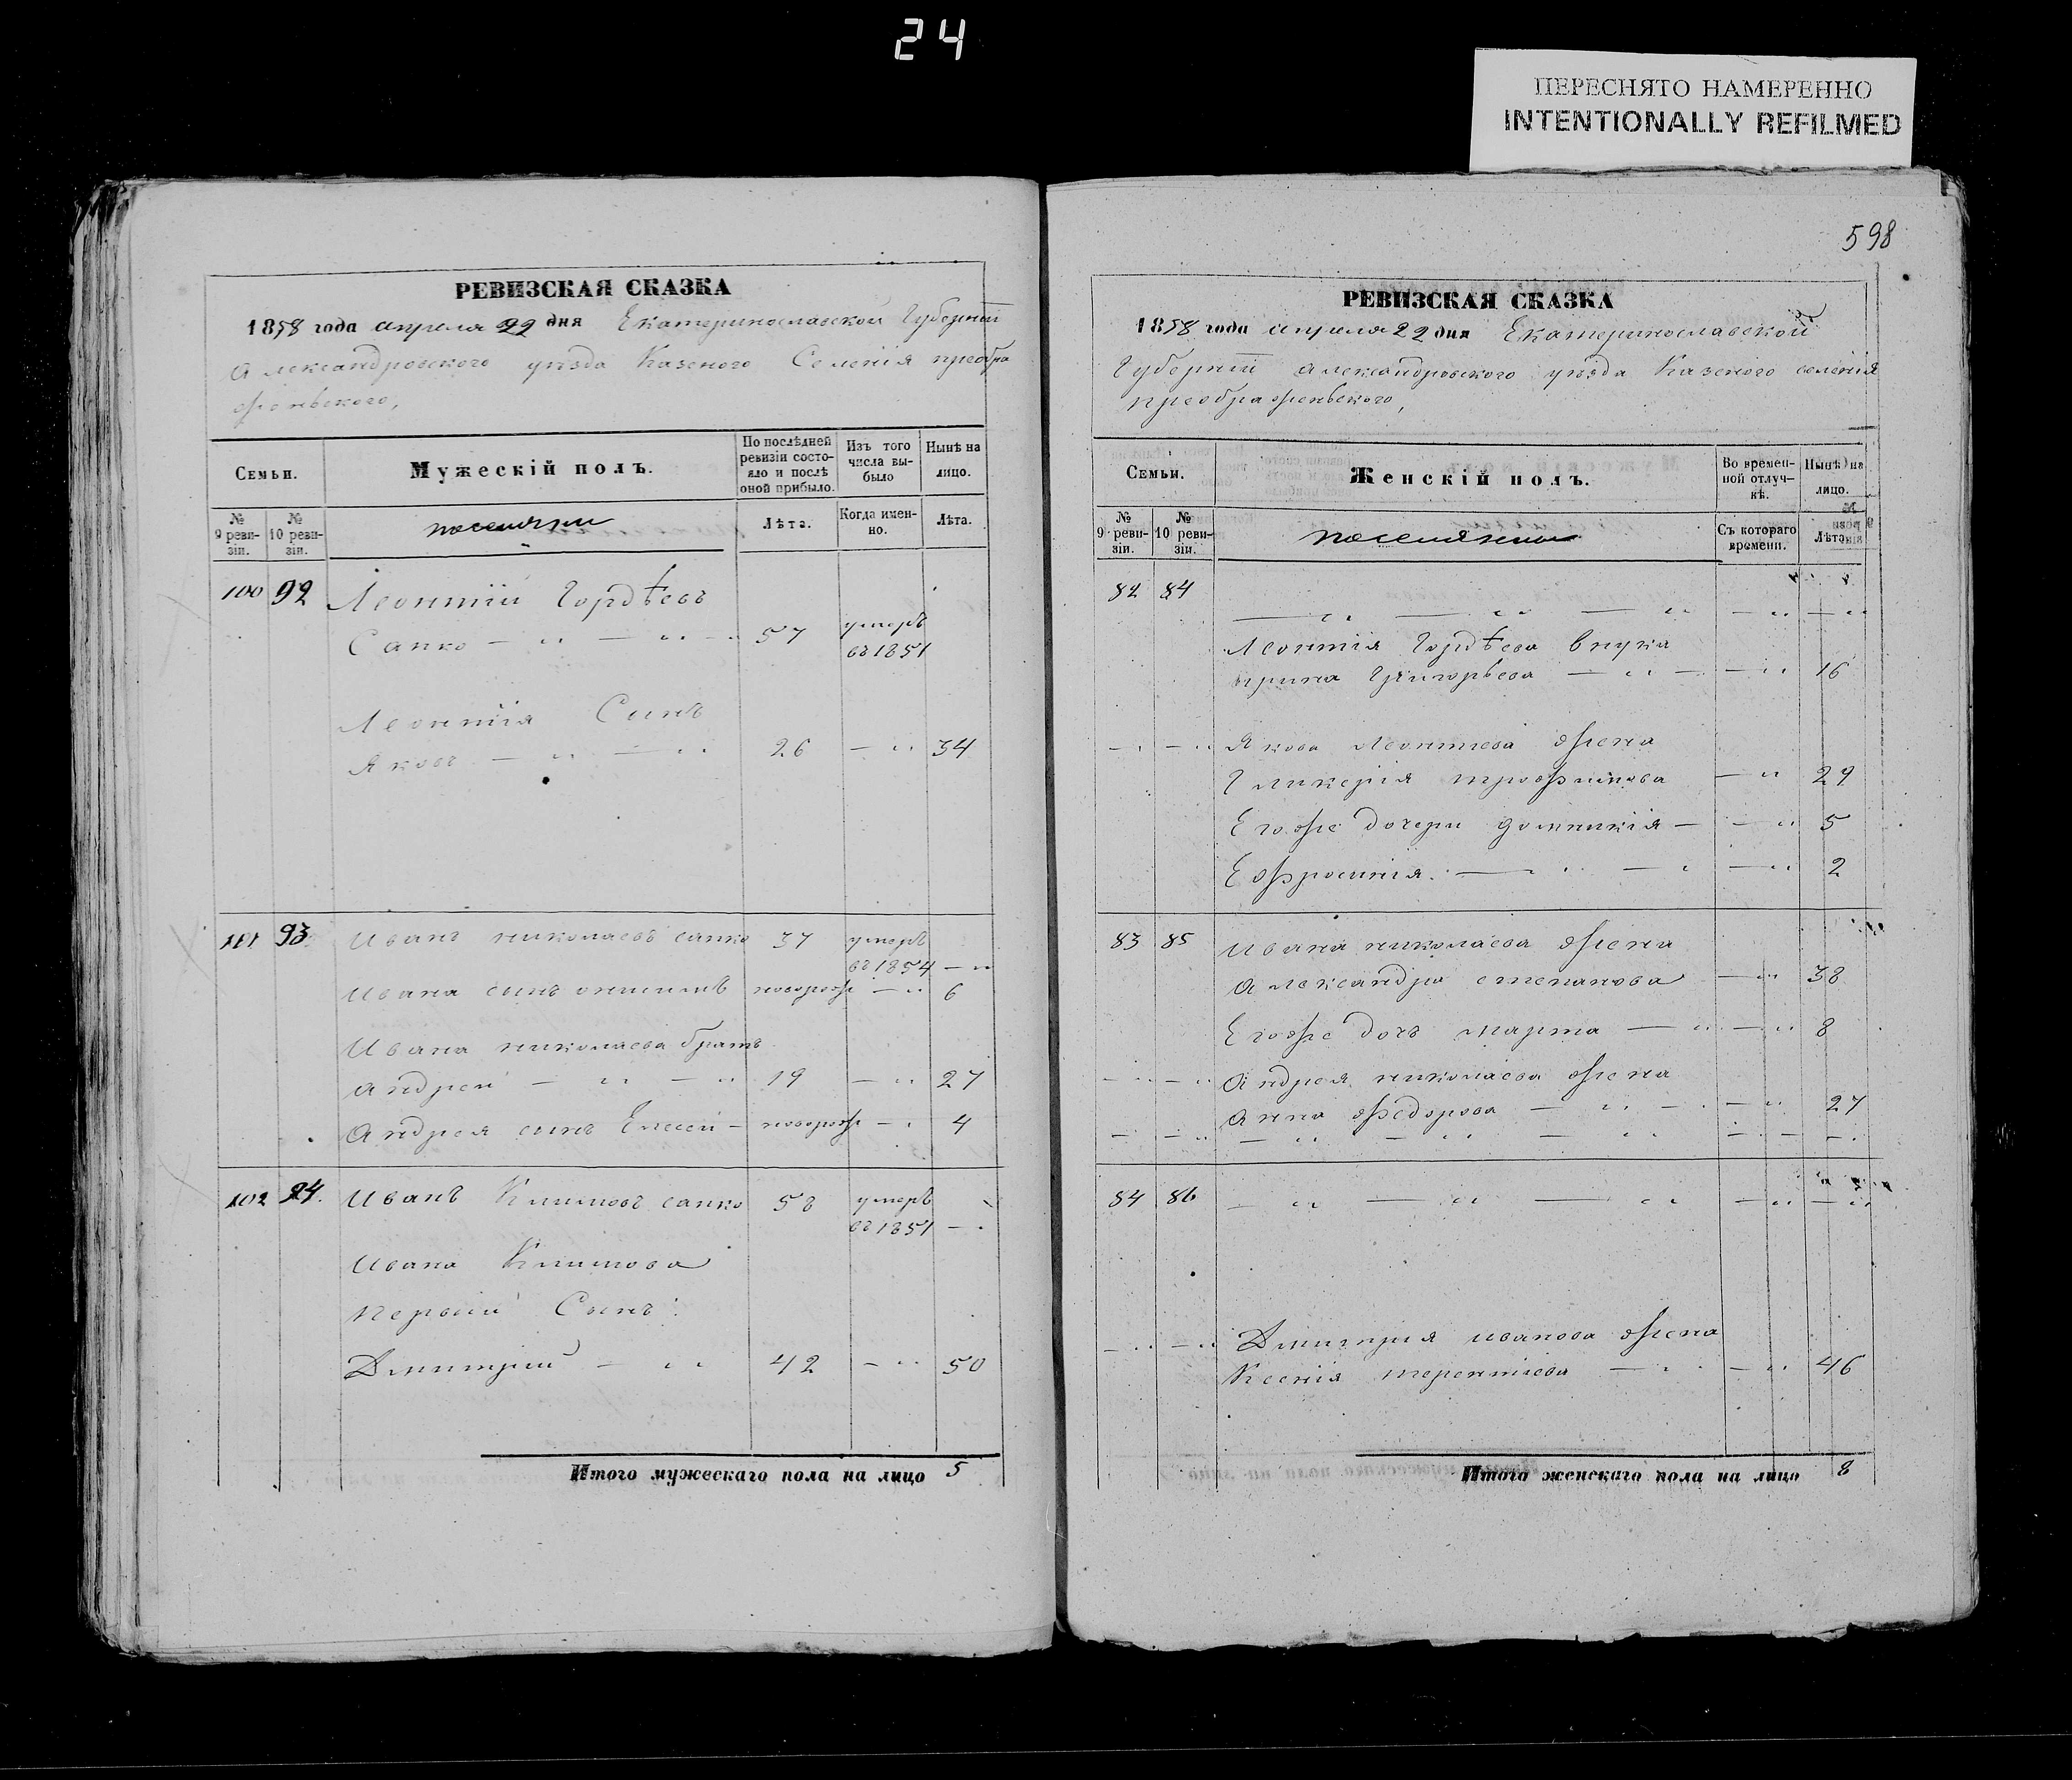 24
ПЕРЕСНЯТО НАМЕРЕННО
INTENTIONALLY REFILMED
РЕВИЗСКАЯ СКАЗКА
1858 года апреля 22 дня Екатеринославской Губернiи
Александровского уѣзда Казеного Селенiя преобра
женьского,
Семьи.
Мужескiй полъ.
По послѣдней ревизiи состояло и послѣ оной прибыло.
Изъ того числа выбыло
Нынѣ на лицо.
№ 9 ревизiи.
№ 10 ревизiи.
поселяни
Лѣта.
Когда именно.
Лѣта.
100 92 Леонтiй Гордѣевъ
Сапко — „ — „ 57 умеръ въ 1851
Леонтiя Сынъ
Яковъ — „ — „ 26 — „ 34
101 93 Иванъ николаевъ сапко 37 умеръ въ 1854 — „
Ивана сынъ новорож — „ 6
Ивана николаева братъ
Андрей — „ — „ 19 — „ 27
Андрея сынъ Елисей — новорож — „ 4
102 94. Иванъ Климовъ сапко 58 умеръ въ 1851 — „
Ивана Климова
Первый Сынъ
Дмитрий — „ 42 — „ 50
Итого мужескаго пола на лицо 5
598
РЕВИЗСКАЯ СКАЗКА
1858 года апреля 22 дня Екатеринославской
Губернiи Александровского уѣзда Казеного селенiя
преображеньского,
Семьи.
Женскiй полъ.
Во временной отлучкѣ.
Нынѣ на лицо.
№ 9 ревизiи.
№ 10 ревизiи.
поселянки
Съ котораго времени.
Лѣта
82 84 — „ — „ — „ — „ — „
Леонтiя Гордѣева внука
ирина Григорьева — „ — — „ 16
— „ — „ Якова Леонтиева жена
Гликерiя трофимова — „ 29
Его же дочери домникiя — — „ 5
Ефросинiя. — „ — „ — „ 2
83 85 Ивана николаева жена
Александра степанова — „ 38
Его же дочь марта — „ — „ 8
— „ — „ Андрея николаева жена
Анна федорова — „ — — „ 27
— „ — „ — „ — „ — „ — „ — „
84 86 — „ — „ — „ — „ — „
— „ — „ Дмитрия иванова жена
Ксенiя терентиева — „ — „ 46
Итого женскаго пола на лицо 8